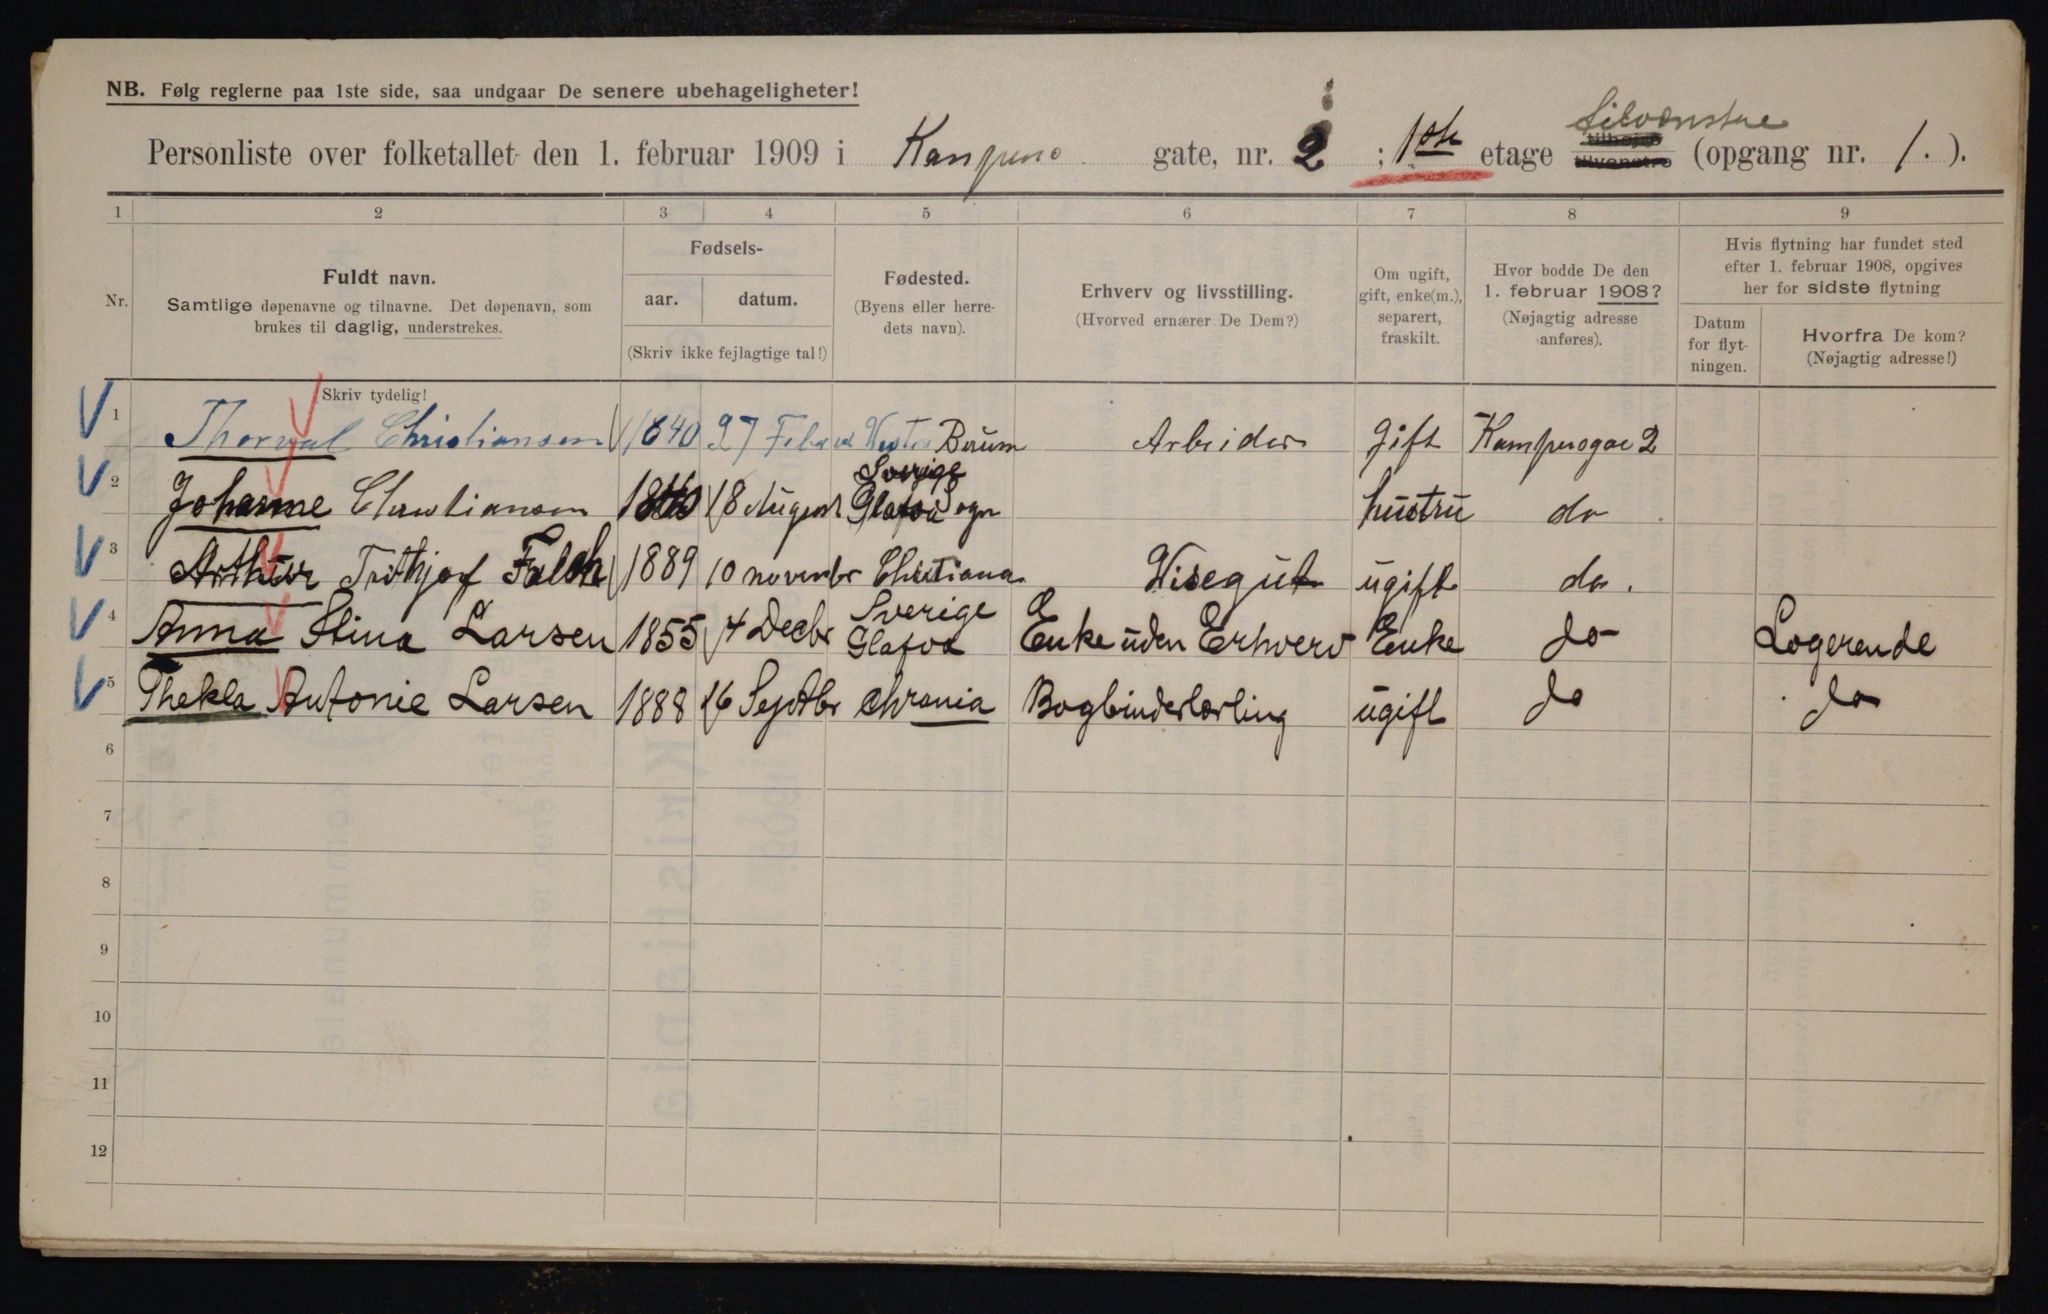 NB. Følg reglerne paa 1ste side, saa undgaar De senere ubehageligheter!
Personliste over folketallet den 1. februar 1909 i Kanpens gate, nr. 2 ; 1ste etage tilhøjre tilvenstre tilvenstre (opgang nr. 1. ).
1 2 3 4 5 6 7 8 9
Nr.
Fuldt navn.
Samtlige døpenavne og tilnavne. Det døpenavn, som
brukes til daglig, understrekes.
Fødsels-
aar. datum.
(Skriv ikke fejlagtige tal!)
Fødested.
(Byens eller herre-
dets navn).
Erhverv og livsstilling.
(Hvorved ernærer De Dem?)
Om ugift,
gift, enke(m.),
separert,
fraskilt.
Hvor bodde De den
1. februar 1908?
(Nøjagtig adresse
anføres).
Hvis flytning har fundet sted
efter 1. februar 1908, opgives
her for sidste flytning
Datum
for flyt-
ningen.
Hvorfra De kom?
(Nøjagtig adresse!)
Skriv tydelig!
1 Thorval Christiansen 1840 27 Vester Berum Arbeider gift 2
2 Johanne Christiansen 18 August Sverige Glafva Sogn hustru do
3 Arthur Frithjof Falch 1889 10 novembr Christiana Visegut ugift do.
4 Anna Stina Larsen 1855 4 Decbr Sverige Glafva Enke uden Erhverv Enke do Logerende
5 Thekla Antonie Larsen 1888 16 Septbr Chrania Bogbinderlærling ugift do do
6
7
8
9
10
11
12